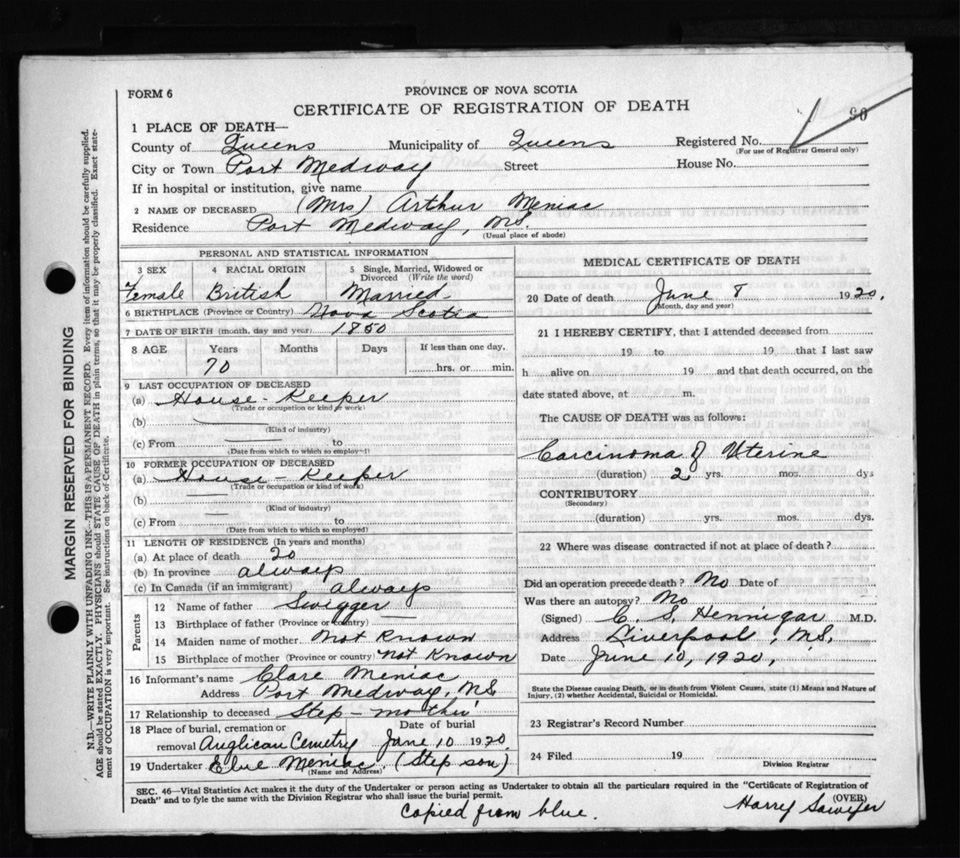 PROVINCE OF NOVA SCOTIA
FORM 6
CERTIFICATE OF REGISTRATION OF DEATH
90
1 PLACE OF DEATH—
County of Queens Municipality of Queens Registered No.
(For use of Registrar General only)
City or Town Port Medway Street House No.
If in hospital or institution, give name
2 NAME OF DECEASED (Mrs) Arthur Meniac
Residence Port Medway, N.S.
(Usual place of abode)
MARGIN RESERVED FOR BINDING
N.B.—WRITE PLAINLY WITH UNFADING INK—THIS IS A PERMANENT RECORD. Every item of information should be carefully supplied.
AGE should be stated EXACTLY. PHYSICIANS should STATE CAUSE OF DEATH in plain terms, so that it may be properly classified. Exact state-
ment of OCCUPATION is very important. See instructions on back of Certificate.
PERSONAL AND STATISTICAL INFORMATION
3 SEX 4 RACIAL ORIGIN 5 Single, Married, Widowed or
Divorced (Write the word)
Female British Married
6 BIRTHPLACE (Province or Country) Nova Scotia
7 DATE OF BIRTH (month, day and year) 1850
8 AGE Years Months Days If less than one day,
70 hrs. or min.
9 LAST OCCUPATION OF DECEASED
(a) House-Keeper
(Trade or occupation or kind of work)
(b)
(Kind of industry)
(c) From to
(Date from which to which so employed)
10 FORMER OCCUPATION OF DECEASED
(a) House-Keeper
(Trade or occupation or kind of work)
(b)
(Kind of industry)
(c) From to
(Date from which to which so employed)
11 LENGTH OF RESIDENCE (In years and months)
(a) At place of death 20
(b) In province always
(c) In Canada (if an immigrant) always
Parents
12 Name of father Swigger
13 Birthplace of father (Province or country)
14 Maiden name of mother Not Known
15 Birthplace of mother (Province or country) Not Known
16 Informant's name Clare Meniac
Address Port Medway, N.S.
17 Relationship to deceased Step-mother
18 Place of burial, cremation or Date of burial
removal Anglican Cemetry June 10 1920
19 Undertaker Meniac (Step son)
(Name and Address)
MEDICAL CERTIFICATE OF DEATH
20 Date of death June 8 1920.
(Month, day and year)
21 I HEREBY CERTIFY, that I attended deceased from
19 to 19 that I last saw
h alive on 19 and that death occurred, on the
date stated above, at m.
The CAUSE OF DEATH was as follows:
Carcinoma of Uterine
(duration) 2 yrs. mos. dys
CONTRIBUTORY
(Secondary)
(duration) yrs. mos. dys.
22 Where was disease contracted if not at place of death?
Did an operation precede death? No Date of
Was there an autopsy? No
(Signed) C. S. Hennigar M.D.
Address Liverpool, N.S.
Date June 10, 1920,
State the Disease causing Death, or in death from Violent Causes, state (1) Means and Nature of
Injury, (2) whether Accidental, Suicidal or Homicidal.
23 Registrar's Record Number
24 Filed 19
Division Registrar
SEC. 46—Vital Statistics Act makes it the duty of the Undertaker or person acting as Undertaker to obtain all the particulars required in the "Certificate of Registration of
Death" and to fyle the same with the Division Registrar who shall issue the burial permit.
(OVER)
Copied from blue. Harry Sawyer